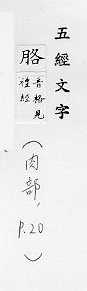 五經文字
胳
音格見
禮經
(肉部,
P.20)